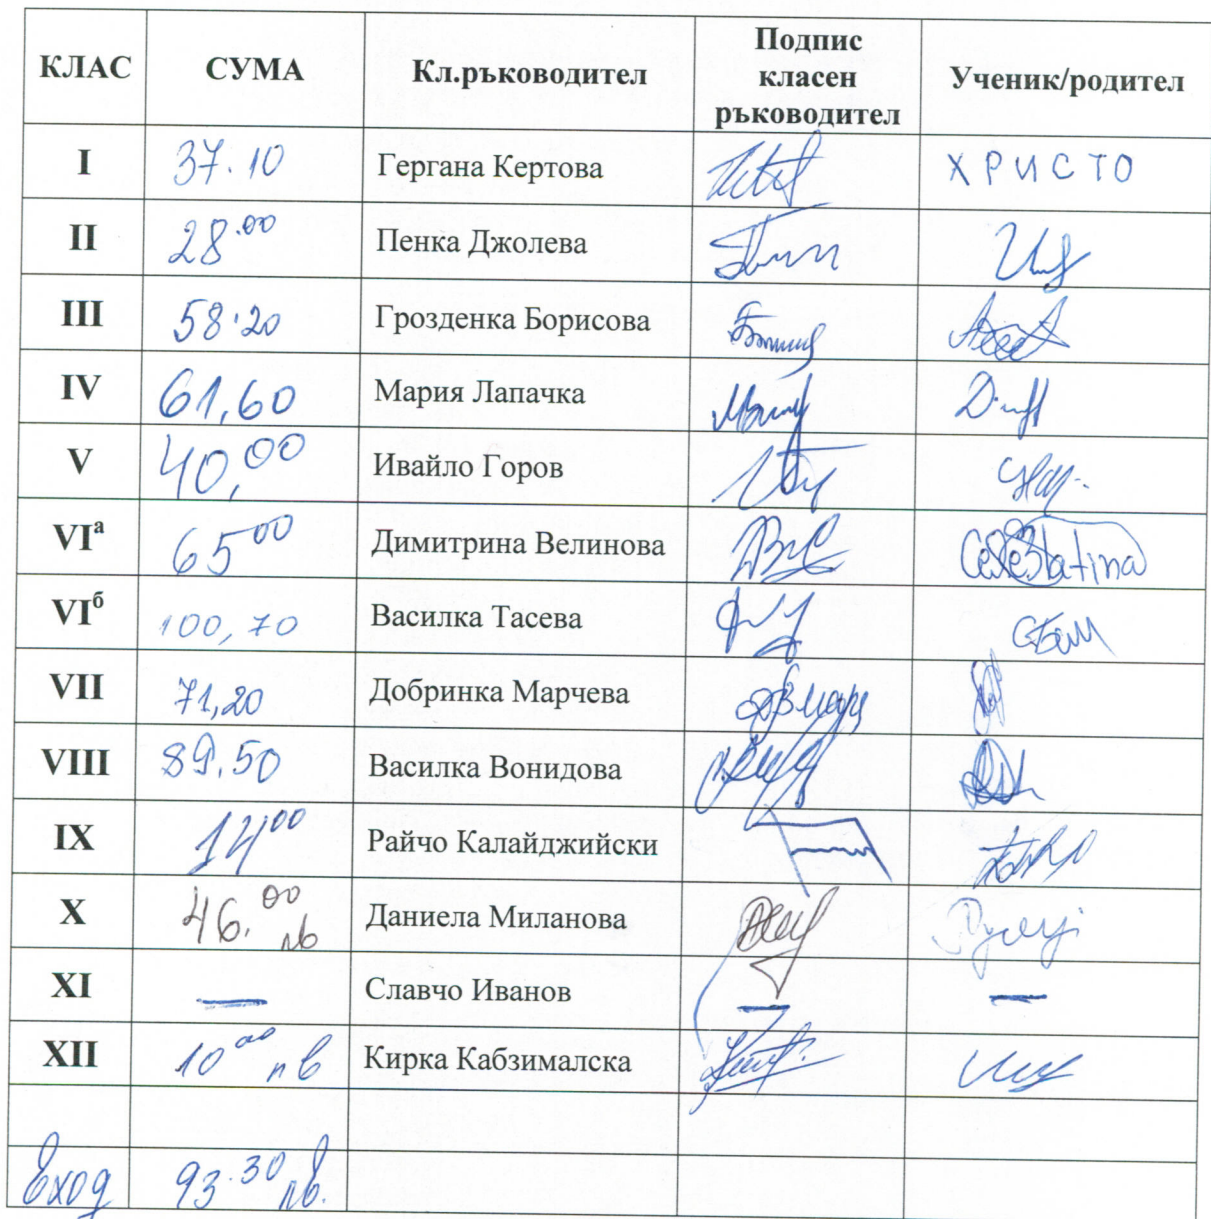 КЛАС СУМА Кл.ръководител Подпис класен ръководител Ученик/родител
I 37.10 Гергана Кертова ХРИСТО
II 28.00 Пенка Джолева
III 58.20 Грозденка Борисова
IV 61,60 Мария Лапачка
V 40,00 Ивайло Горов
VIа 65 00 Димитрина Велинова
VIб 100,70 Василка Тасева
VII 71,20 Добринка Марчева
VIII 89.50 Василка Вонидова
IX 14 00 Райчо Калайджийски
X 46.00 лв Даниела Миланова
XI — Славчо Иванов — —
XII 10 00 лв Кирка Кабзималска
Вход 93.30 лв.